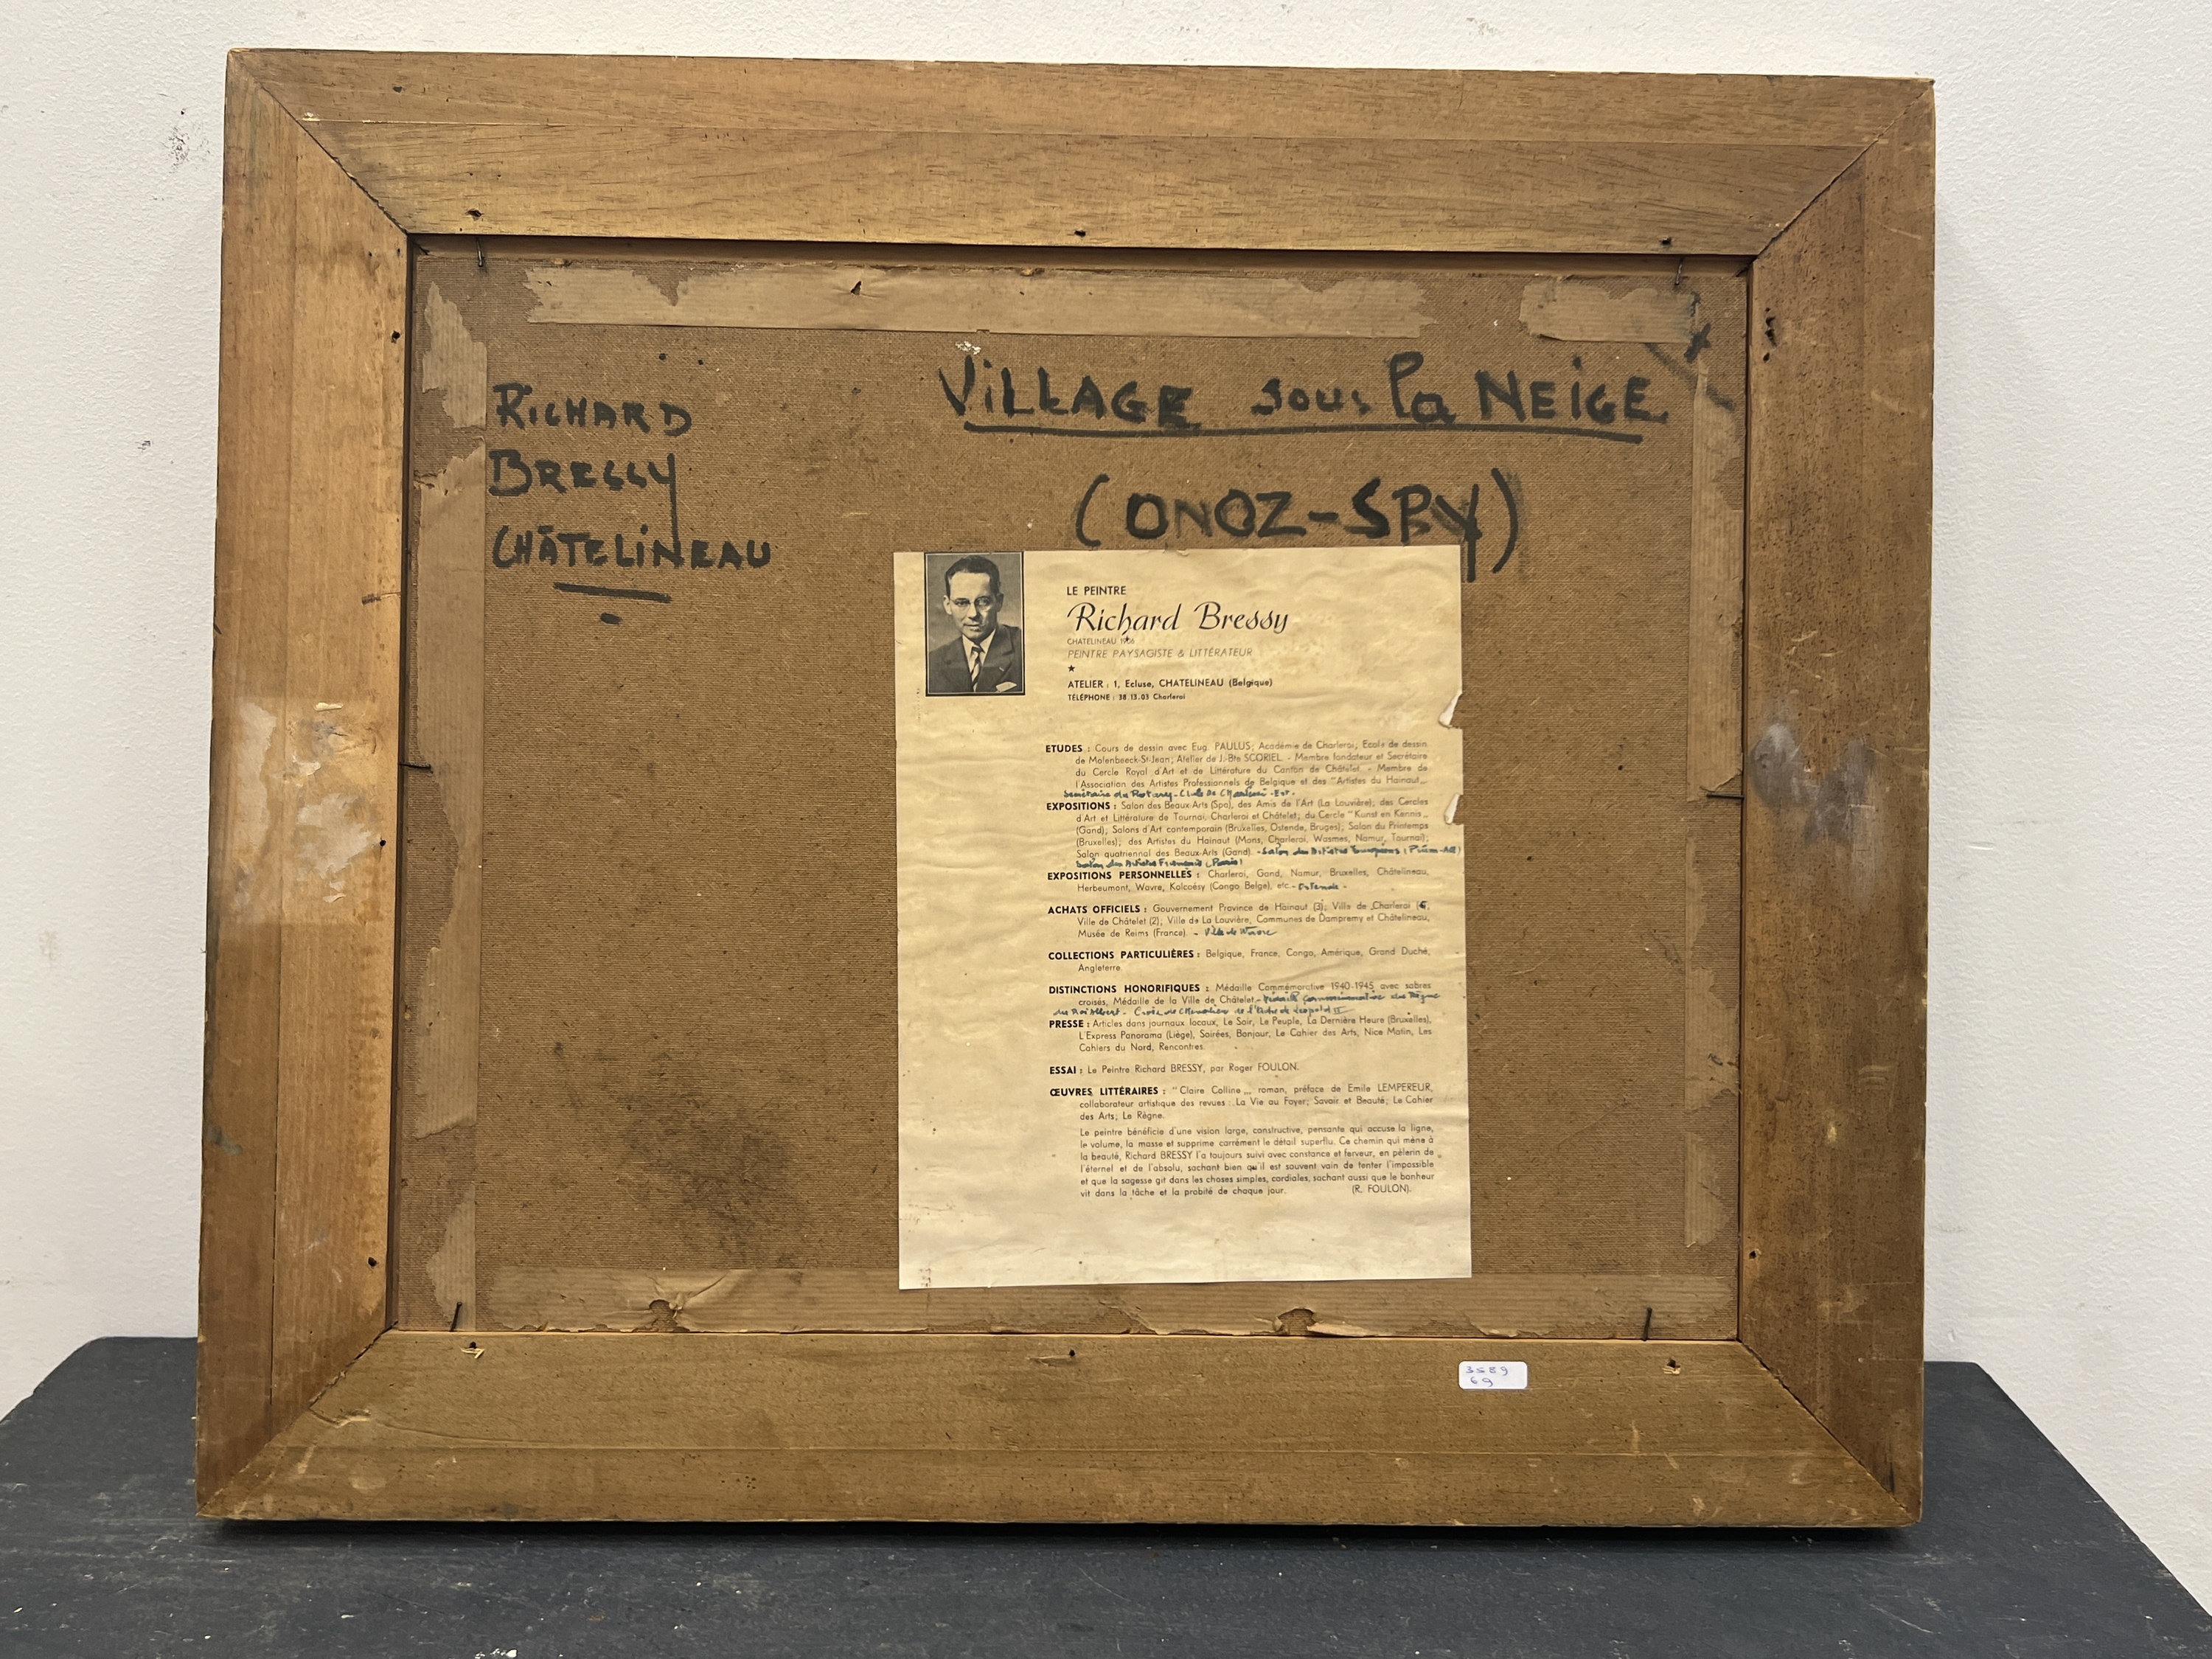 RICHARD
BRESSY
CHÂTELINEAU
VILLAGE sous la NEIGE
(ONOZ-SPY)
LE PEINTRE
Richard Bressy
CHATELINEAU 1906
PEINTRE PAYSAGISTE & LITTÉRATEUR
★
ATELIER : 1, Ecluse, CHATELINEAU (Belgique)
TÉLÉPHONE : 38.13.03 Charleroi
ETUDES : Cours de dessin avec Eug. PAULUS; Académie de Charleroi; Ecole de dessin
de Molenbeeck-St-Jean; Atelier de J.-Bte SCORIEL. - Membre fondateur et Secrétaire
du Cercle Royal d'Art et de Littérature du Canton de Châtelet. - Membre de
l'Association des Artistes Professionnels de Belgique et des "Artistes du Hainaut„
Secrétaire du Rotary-Club de Charleroi-Est.
EXPOSITIONS : Salon des Beaux-Arts (Spa), des Amis de l'Art (La Louvière); des Cercles
d'Art et Littérature de Tournai, Charleroi et Châtelet; du Cercle "Kunst en Kennis„
(Gand); Salons d'Art contemporain (Bruxelles, Ostende, Bruges); Salon du Printemps
(Bruxelles); des Artistes du Hainaut (Mons, Charleroi, Wasmes, Namur, Tournai);
Salon quatriennal des Beaux-Arts (Gand). - Salon des Artistes
Salon des Artistes Français (Paris)
EXPOSITIONS PERSONNELLES : Charleroi, Gand, Namur, Bruxelles, Châtelineau,
Herbeumont, Wavre, Kolcoësy (Congo Belge), etc. - Ostende -
ACHATS OFFICIELS : Gouvernement Province de Hainaut (3); Ville de Charleroi
Ville de Châtelet (2); Ville de La Louvière, Communes de Dampremy et Châtelineau,
Musée de Reims (France). - Ville de Wavre
COLLECTIONS PARTICULIÈRES : Belgique, France, Congo, Amérique, Grand Duché,
Angleterre.
DISTINCTIONS HONORIFIQUES : Médaille Commémorative 1940-1945 avec sabres
croisés, Médaille de la Ville de Châtelet. - Médaille commémorative du Règne
du Roi Albert - Croix de Chevalier de l'Ordre de Léopold II
PRESSE : Articles dans journaux locaux, Le Soir, Le Peuple, La Dernière Heure (Bruxelles),
L'Express Panorama (Liège), Soirées, Bonjour, Le Cahier des Arts, Nice Matin, Les
Cahiers du Nord, Rencontres.
ESSAI : Le Peintre Richard BRESSY, par Roger FOULON.
ŒUVRES LITTÉRAIRES : "Claire Colline„ roman, préface de Emile LEMPEREUR,
collaborateur artistique des revues : La Vie au Foyer; Savoir et Beauté; Le Cahier
des Arts; Le Règne.
Le peintre bénéficie d'une vision large, constructive, pensante qui accuse la ligne,
le volume, la masse et supprime carrément le détail superflu. Ce chemin qui mène à
la beauté, Richard BRESSY l'a toujours suivi avec constance et ferveur, en pèlerin de
l'éternel et de l'absolu, sachant bien qu'il est souvent vain de tenter l'impossible
et que la sagesse gît dans les choses simples, cordiales, sachant aussi que le bonheur
vit dans la tâche et la probité de chaque jour. (R. FOULON).
3589
69